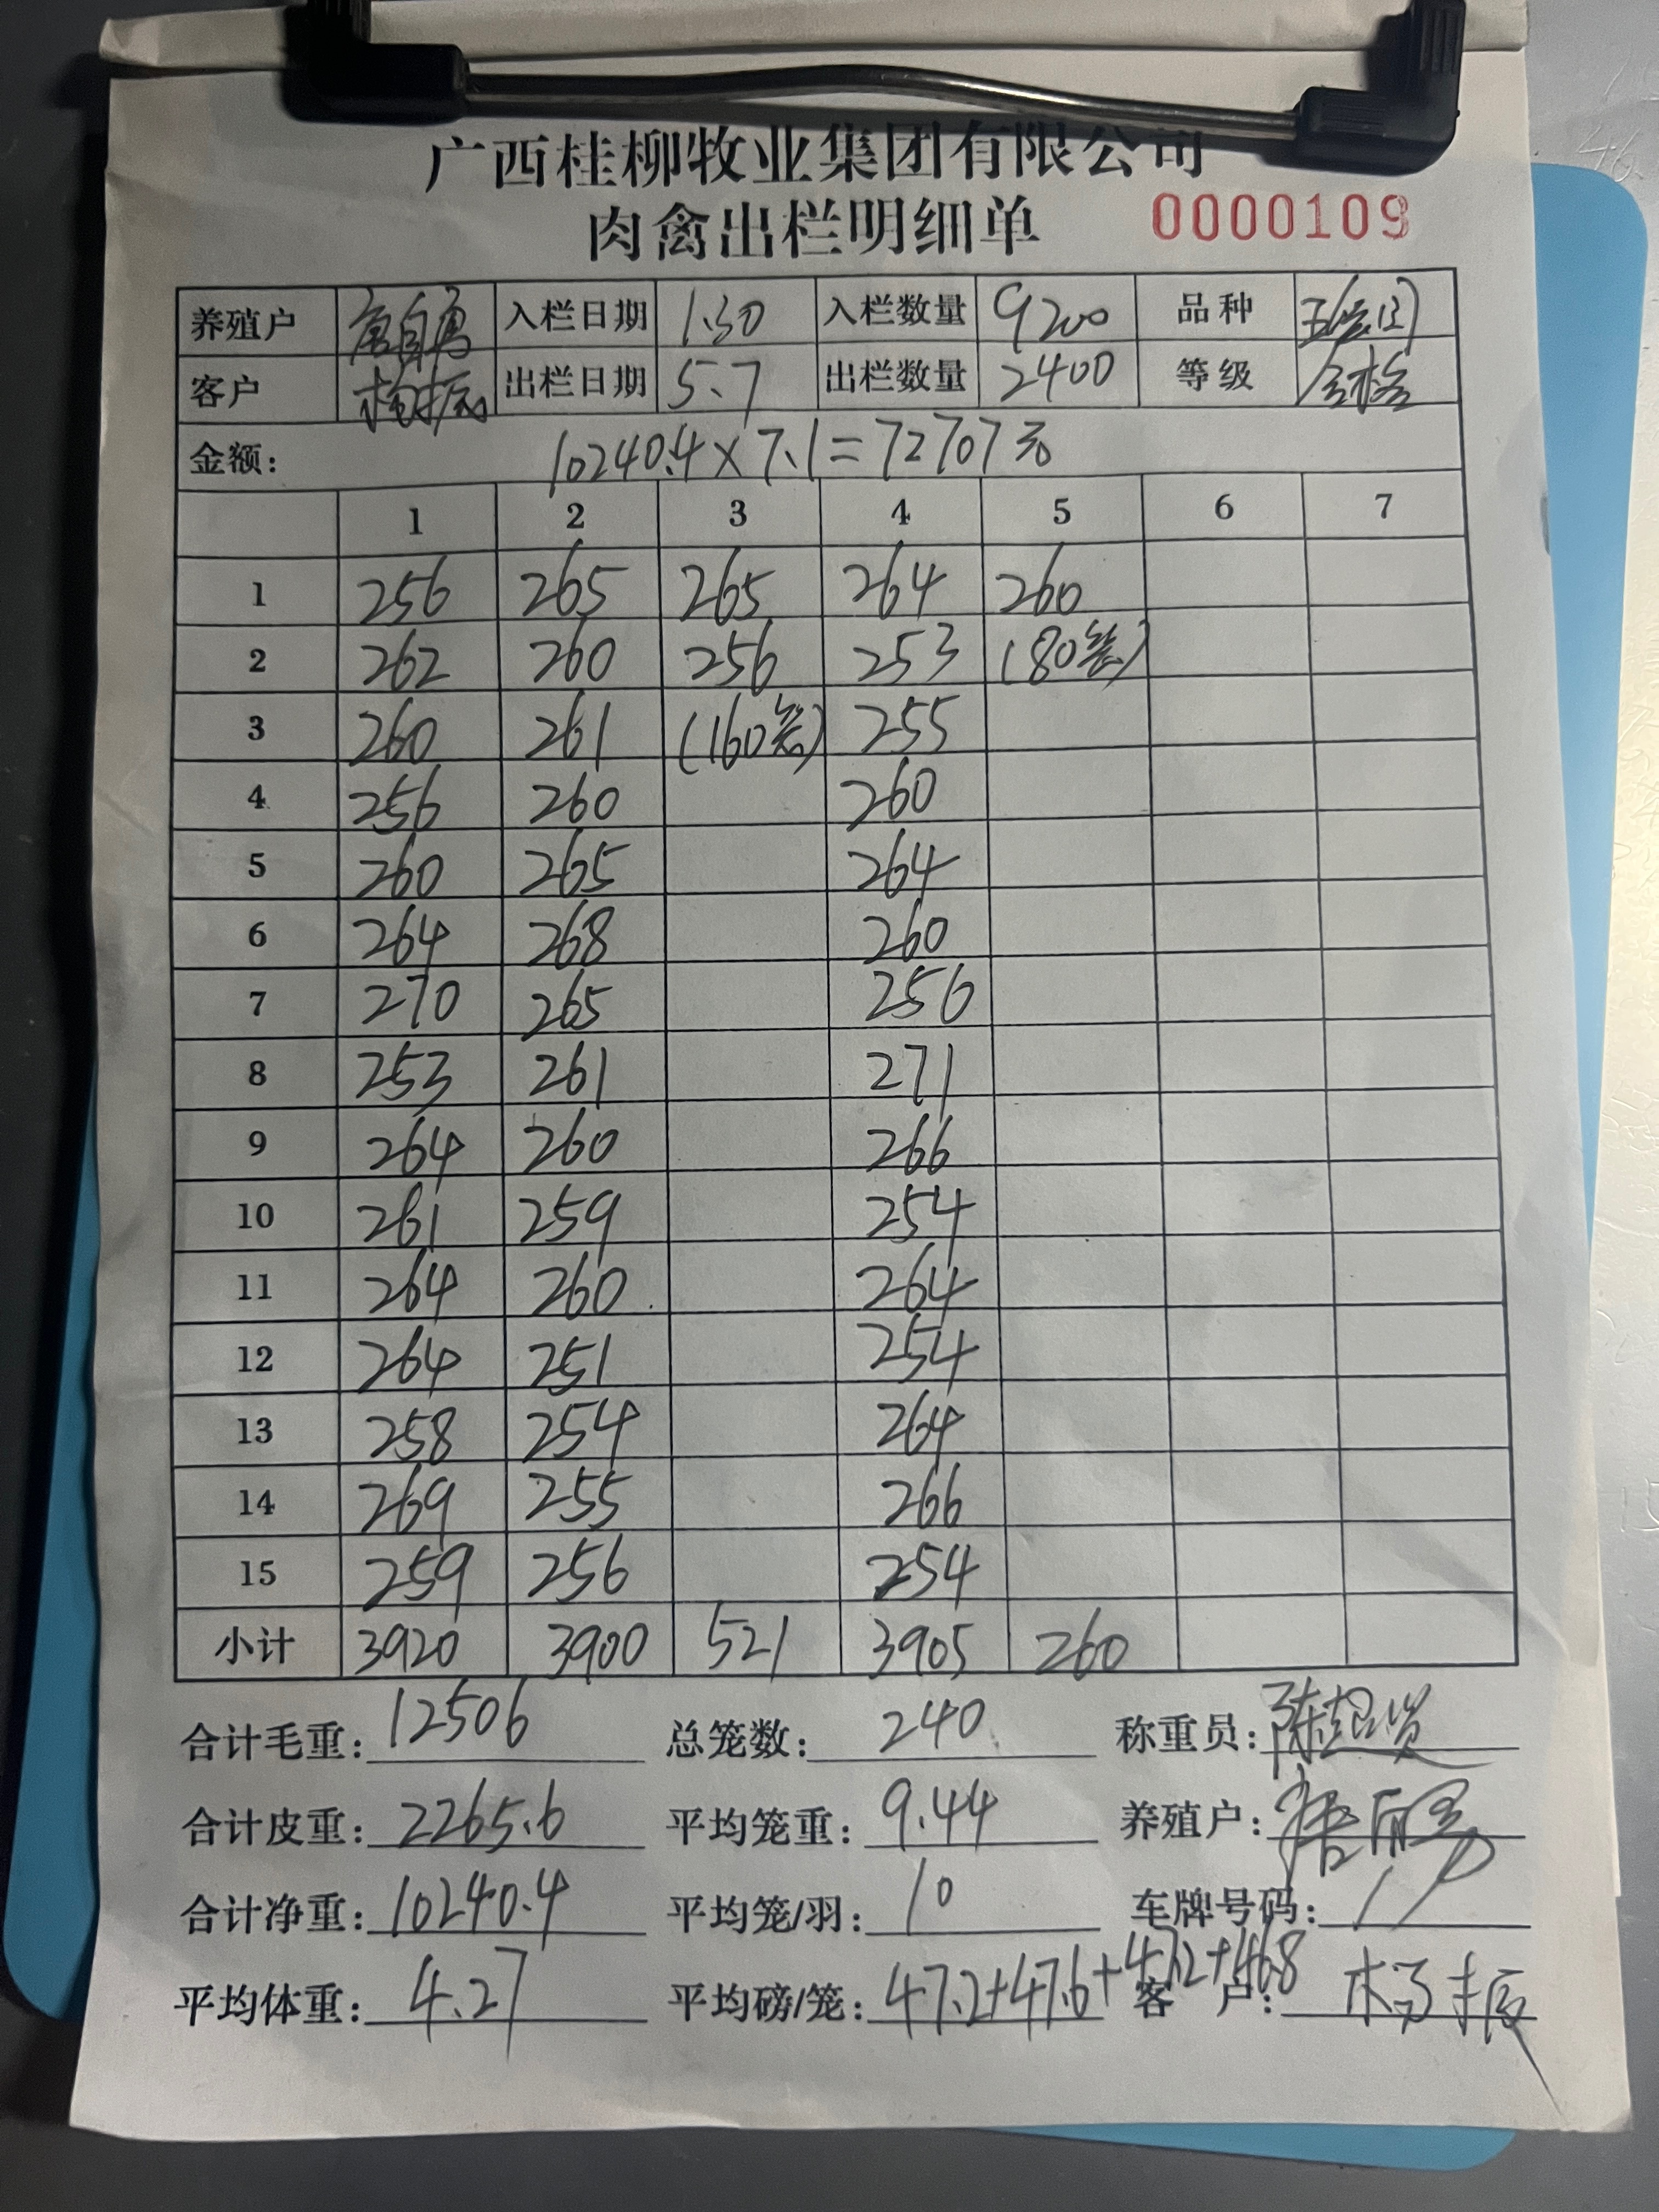 广西桂柳牧业集团有限公司
肉禽出栏明细单 0000109
养殖户 入栏日期 1.30 入栏数量 9200 品种
客户 出栏日期 5.7 出栏数量 2400 等级 合格
金额: 10240.4×7.1=72707元
1 2 3 4 5 6 7
1 256 265 265 264 260
2 262 260 256 253 (80笼)
3 260 261 (160笼) 255
4 256 260 260
5 260 265 264
6 264 268 260
7 270 265 256
8 253 261 271
9 264 260 266
10 261 259 254
11 264 260 264
12 264 251 254
13 258 254 264
14 269 255 266
15 259 256 254
小计 3920 3900 521 3905 260
合计毛重: 12506 总笼数: 240 称重员:
合计皮重: 2265.6 平均笼重: 9.44 养殖户:
合计净重: 10240.4 平均笼/羽: 10 车牌号码:
平均体重: 4.27 平均磅/笼: 47.2+47.6+47.2+46.8 客户: